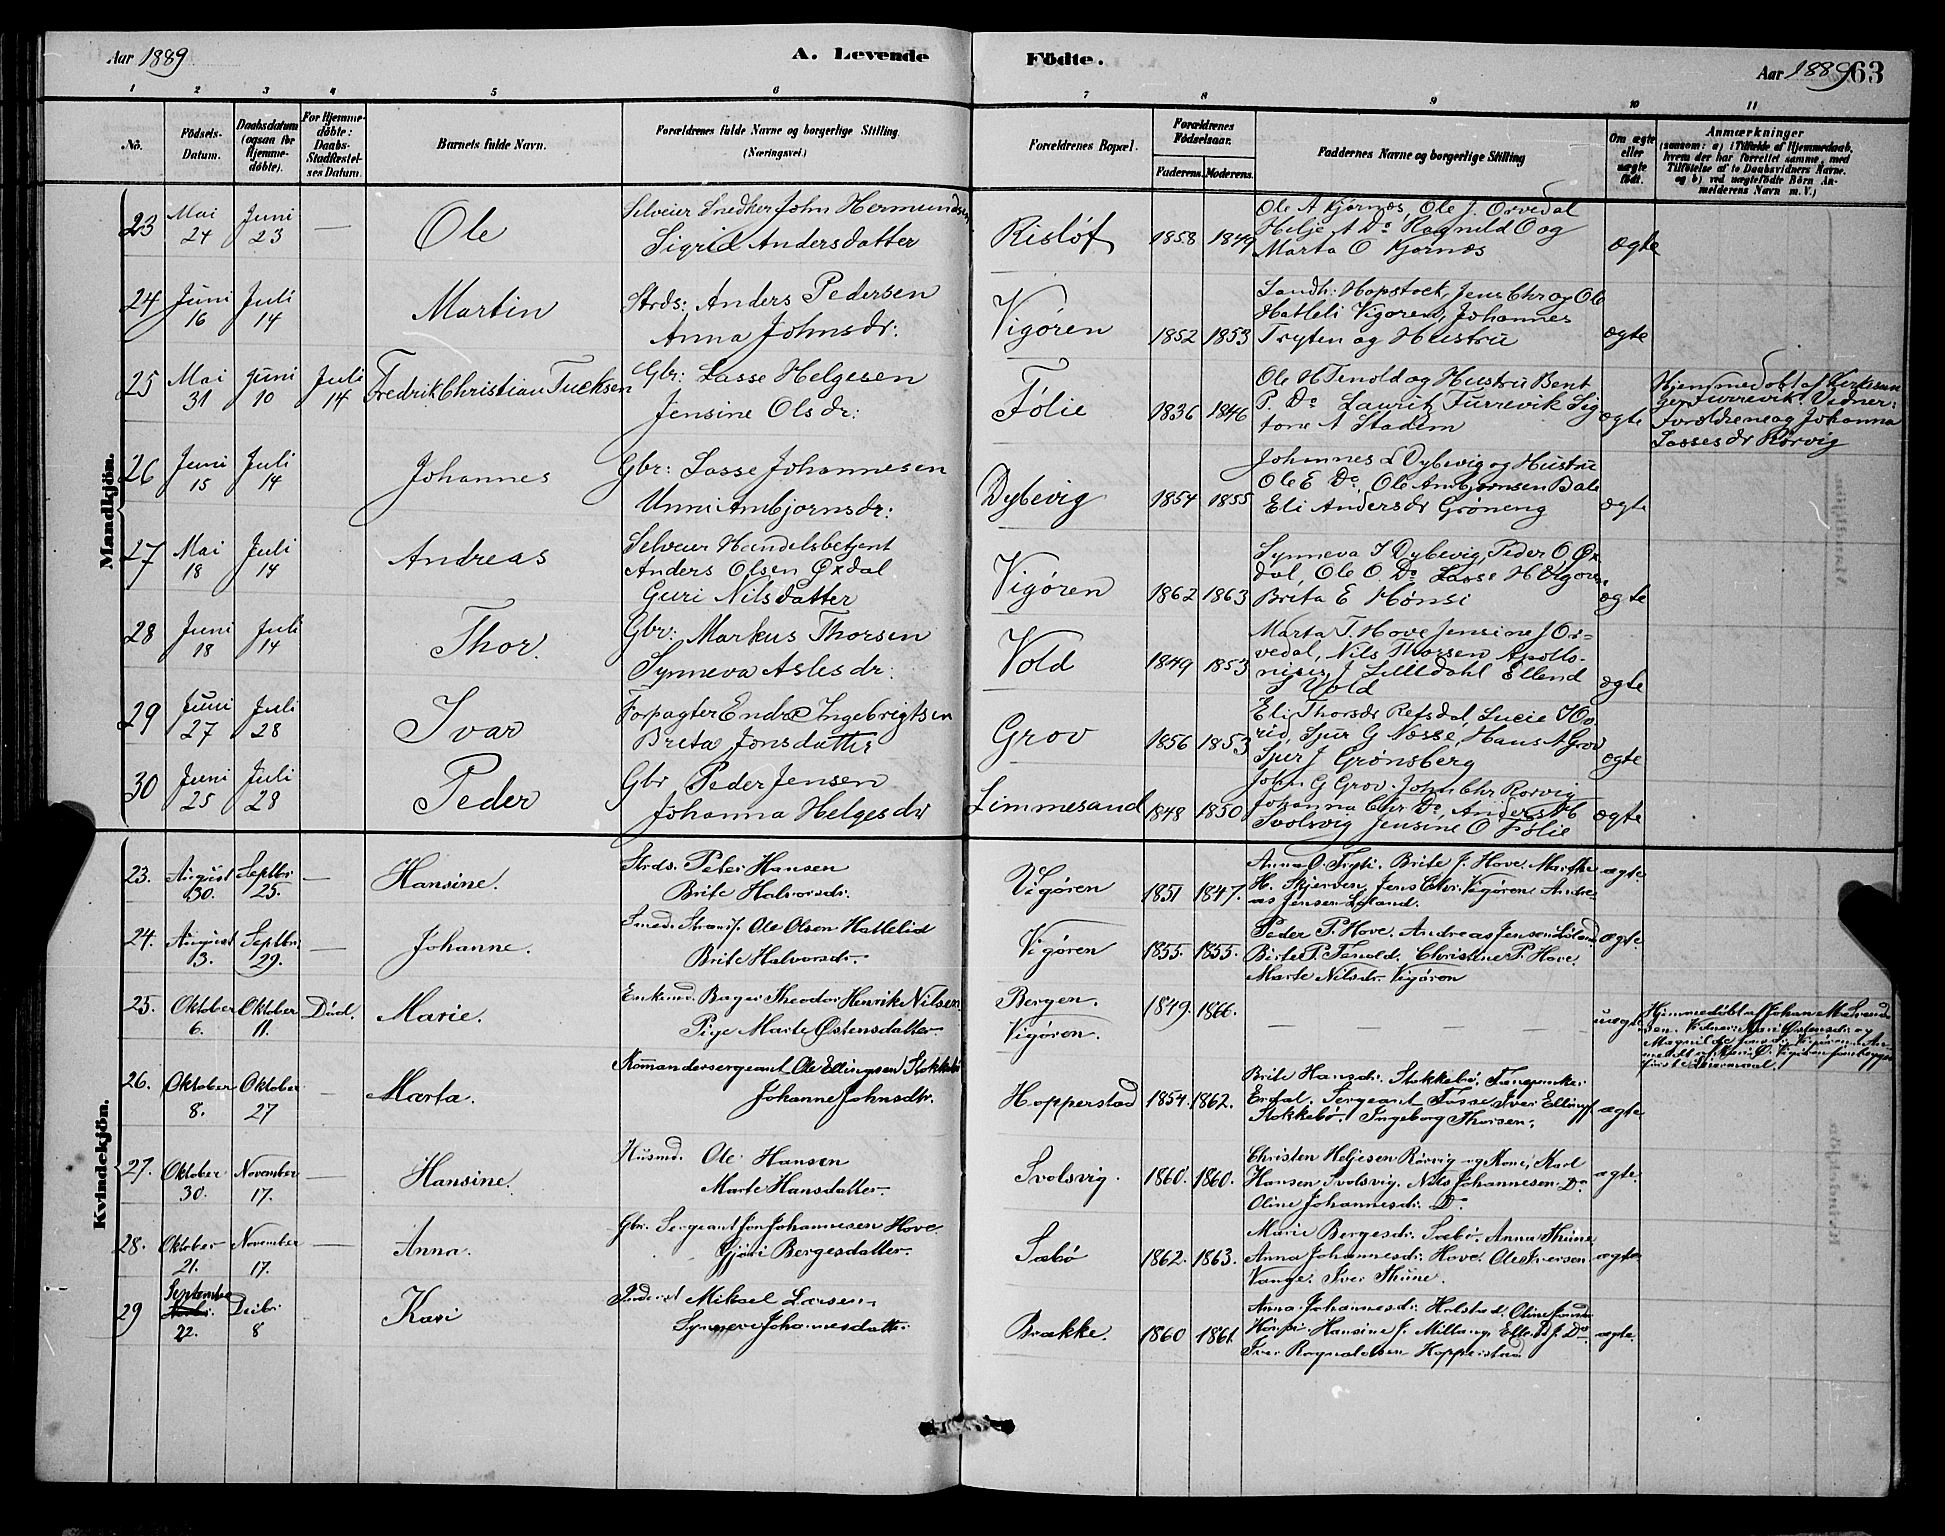 Aar 1889
A. Levende
Födte.
Aar 1889
63
1 2 3 4 5 6 7 8 9 10 11
No.
Födsels-
Datum.
Daabsdatum
(ogsaa for
Hjemme-
döbte).
For Hjemme-
döbte:
Daabs-
Stadfæstel-
ses Datum.
Barnets fulde Navn.
Forældrenes fulde Navne og borgerlige Stilling.
(Næringsvei.)
Forældrenes Bopæl.
Forældrenes
Födselsaar.
Faderens. Moderens.
Faddernes Navne og borgerlige Stilling
Om ægte
eller
uægte
født.
Anmærkninger
(saasom: a) i Tilfælde af Hjemmedaab,
hvem der har forrettet samme, med
Tilföielse af to Daabsvidners Navne.
og b) ved uægtefödte Börn An-
melderens Navn m. V.)
Mandkjön.
23 Mai 24 Juni 23 — Ole
Selveier Snedker John Hermundsen
Sigrid Andersdatter
Risløf 1858 1849
Ole A Kjørnæs, Ole J. Orvedal
Helje A Do Ragnild O og
Marta O Kjørnæs
ægte
24 Juni 16 Juli 14 Martin
Strds: Anders Pedersen
Anna Johnsdr:
Vigøren 1852 1853
Landh: Hopstock, Jens Chr og Ole
Hatleli Vigøren, Johannes
Tryten og Hustru
ægte
25 Mai 31 Juni 10 Juli 14 Fredrik Christian Tucksen
Gbr: Lasse Helgesen
Jensine Olsdr:
Følie 1836 1846
Ole H Tenold og Hustru Bent
P. Do Laurits Furrevik Sig
tone A Stadem
ægte
Hjemmedøbt af Kirkesan
ger Furrevik. Vidner:
Forældrene og Johanna
Lassesdr Rørvig
26 Juni 15 Juli 14 Johannes
Gbr: Lasse Johannesen
Unni Ambjørnsdr:
Dybevig 1854 1855
Johannes L Dybevig og Hustru
Ole E Do, Ole Ambjørnsen Bale
Eli Andersdr Grøneng
ægte
27 Mai 18 Juli 14 Andreas
Selveier Handelsbetjent
Anders Olsen Øxdal
Guri Nilsdatter
Vigøren 1862 1863
Synneva I Dybevig, Peder O Øx
dal, Ole O. Do Lasse H Vigøren
Brita E Hønsi
ægte
28 Juni 18 Juli 14 Thor.
Gbr: Markus Thorsen
Synneva Aslesdr:
Vold 1849 1853
Marta T. Hove Jensine J Or-
vedal, Nils Thorsen Apollo-
J Lilledahl Ellend
S Vold
ægte
29 Juni 27 Juli 28 Ivar
Forpagter Endre Ingebrigtsen
Brita Jonsdatter
Grov 1856 1853
Eli Thorsdr Refsdal, Lucie
Sjur G Nasse, Hans A Grov
Sjur J Grønsberg
ægte
30 Juni 25 Juli 28 Peder
Gbr Peder Jensen
Johanna Helgesdr
Limmesand 1848 1850
John G Grov. John Chr Rørvig
Johanna Chr Do, Anders
Svolsvig Jensine O Følie
ægte
Kvindekjön.
23. August 30. Septbr 25. — Hansine.
Strds. Peter Hansen
Brite Halvorsdr.
Vigøren 1851 1847.
Anna O. Tryti. Brite J. Hove. Marthe
H. Skjerven. Jens Chr. Vigøren. Andre-
as Jensen Løland.
ægte.
24. August 13. Septbr. 29. — Johanne.
Smed. Strans. Ole Olsen Hattelid
Brite Halvorsdr.
Vigøren 1855. 1855.
Peder P. Hove. Andreas Jensen Løland
Birte P. Tenold. Christine P. Hove.
Marte Nilsdr. Vigøren
ægte.
25. Oktober 6. Oktober 11. Død. Marie.
Enkemd. Bager Theodor Henrik Nilsen.
Pige Marte Østensdatter
Bergen.
Vigøren.
1849. 1866. —
uægte
Hjemmedøbt af Johan M.
26. Oktober 8. Oktober 27 — Marta.
Kommandersergeant Ole Ellingsen Stokkebø
Johanne Johnsdtr.
Hopperstad 1854. 1862.
Brite Hansdr. Stokkebø.
Erdal. Sergeant Fosse, Iver Ellingsen
Stokkebø. Ingeborg Thorsen.
ægte
27. Oktober 30. November 17. — Hansine.
Husmd. Ole Hansen
Marte Hansdatter
Svolsvig. 1860. 1860.
Christen Heljesen Rørvig og Kone, Karl
Hansen Svolsvig. Nils Johannesen Do
Oline Johannesdr. Do
ægte.
28. Oktober 21. November 17. — Anna.
Gbr. Sergeant Jon Johannesen Hove.
Gjøri Bergesdatter.
Sæbø 1862. 1863.
Marie Bergesdr. Sæbø. Anna Thune
Anna Johannesdr. Hove. Ole Iversen
Vange. Iver Thune.
ægte
29 September 22. Decbr 8 Kari
Mikael Larsen.
Synneve Johannesdatter
Brække. 1860 1861.
Anna Johannesdr. Oline
Hansine J. Do
Iver Rognaldsen Hopperstad
ægte.